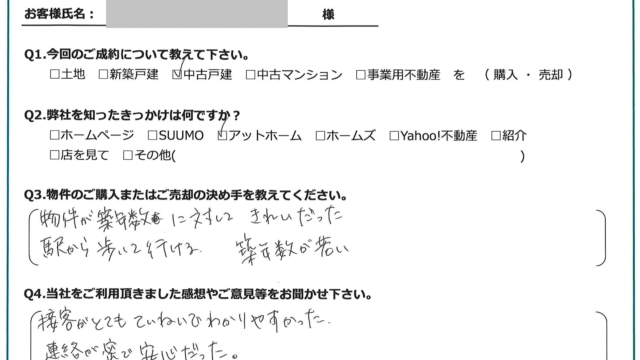 お客様氏名： 様
Q1.今回のご成約について教えて下さい。
□土地 □新築戸建 ☑中古戸建 □中古マンション □事業用不動産 を （ 購入 ・ 売却 ）
Q2.弊社を知ったきっかけは何ですか？
□ホームページ □SUUMO ☑アットホーム □ホームズ □Yahoo!不動産 □紹介
□店を見て □その他( )
Q3.物件のご購入またはご売却の決め手を教えてください。
物件が築年数に対して きれいだった
駅から歩いて行ける 築年数が若い
Q4.当社をご利用頂きました感想やご意見等をお聞かせ下さい。
接客がとてもていねいでわかりやすかった.
連絡が密で安心だった。